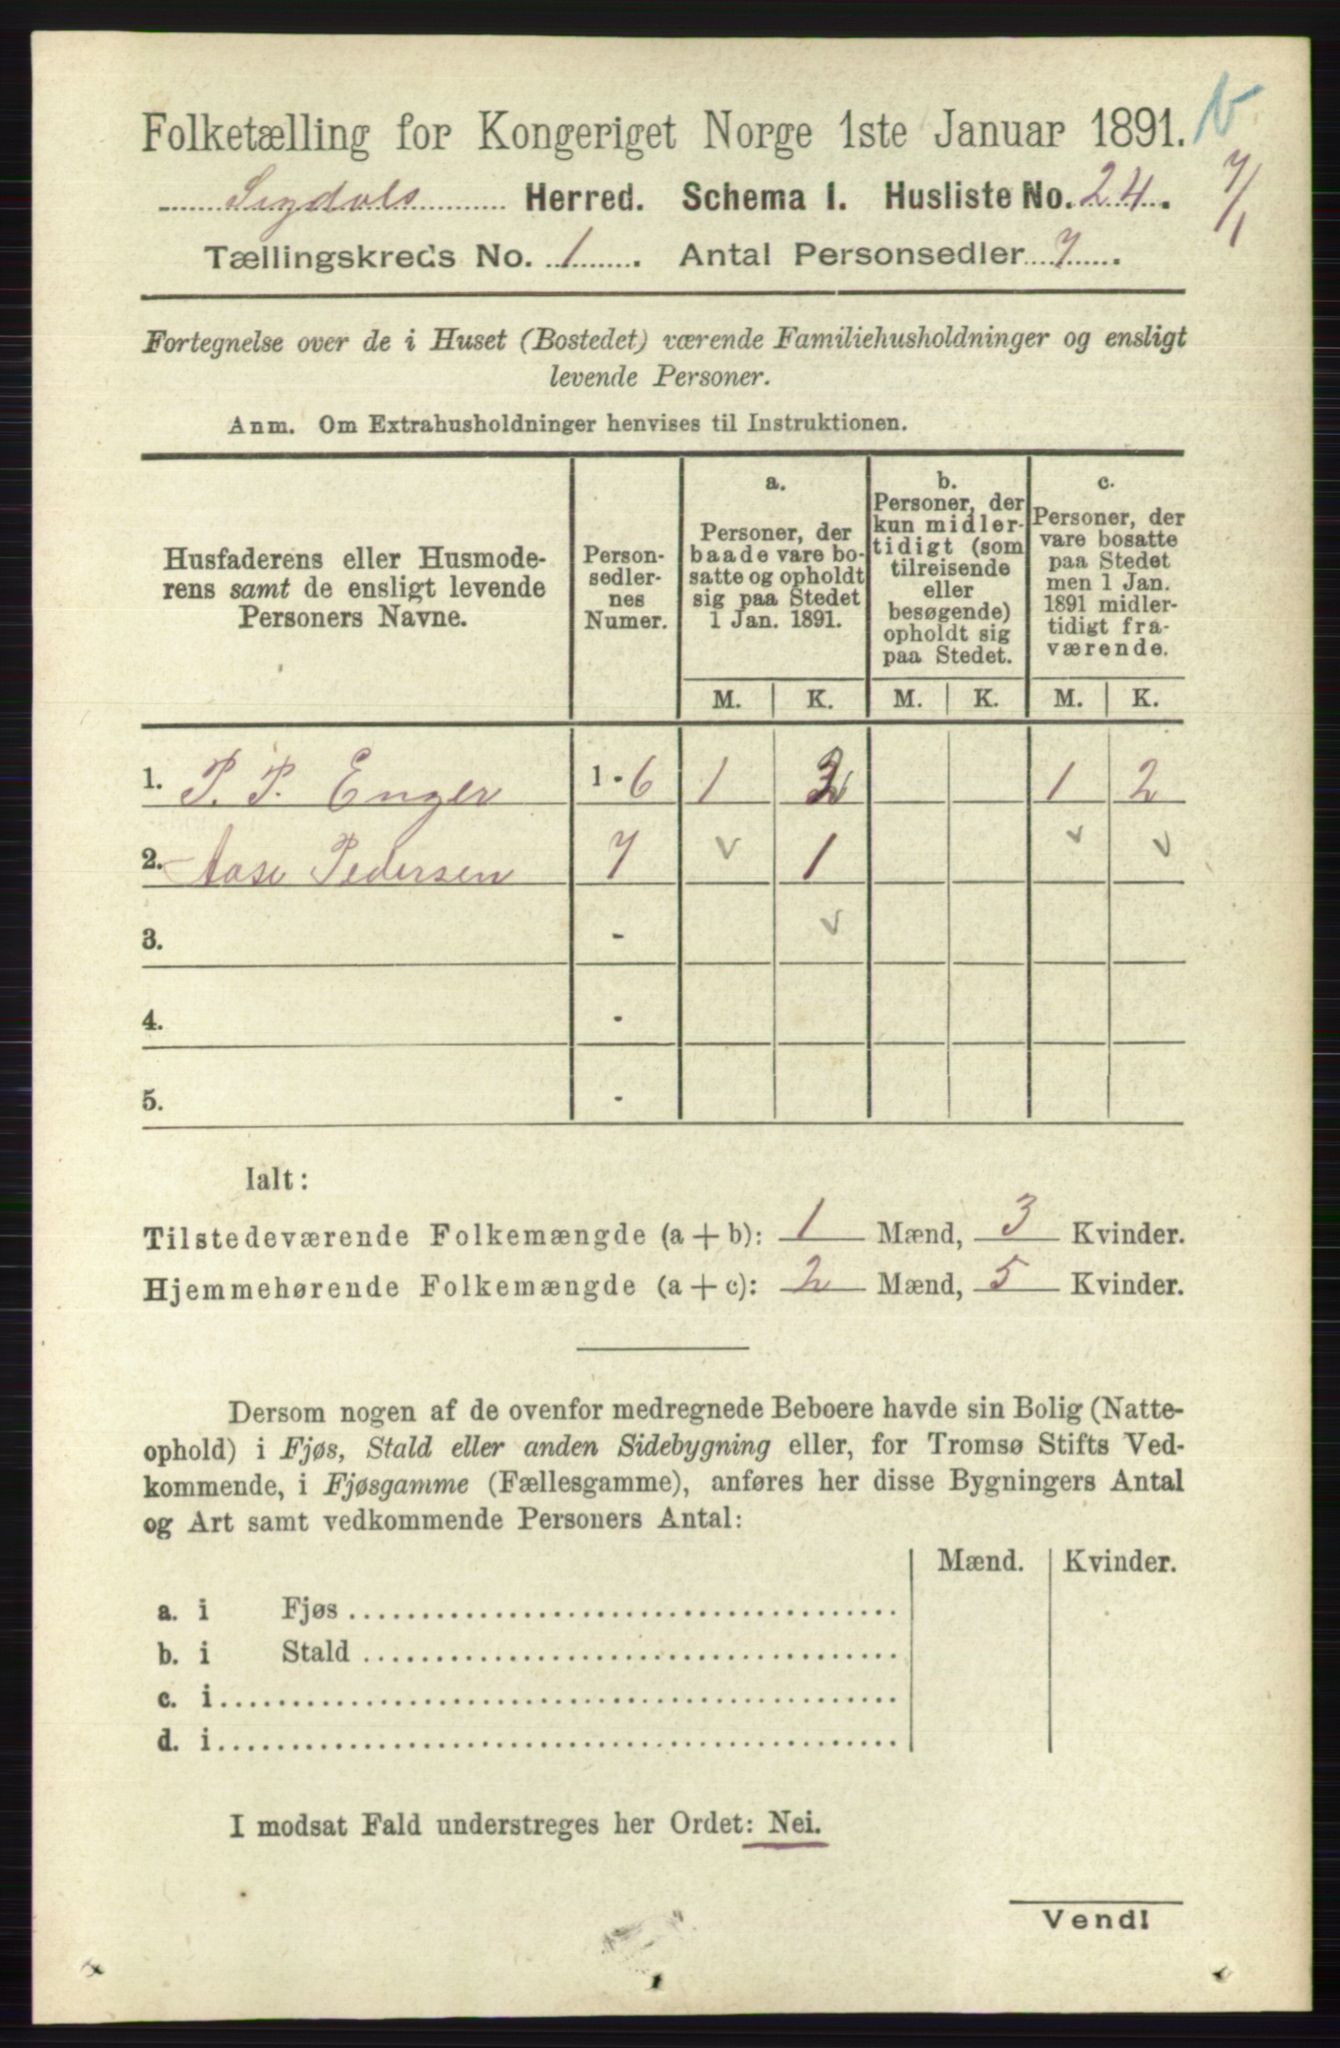 Folketælling for Kongeriget Norge 1ste Januar 1891.
Sigdals Herred. Schema 1. Husliste No. 24.
7/1
Tællingskreds No. 1. Antal Personsedler 7.
Fortegnelse over de i Huset (Bostedet) værende Familiehusholdninger og ensligt
levende Personer.
Anm. Om Extrahusholdninger henvises til Instruktionen.
Husfaderens eller Husmode-
rens samt de ensligt levende
Personers Navne.
Person-
sedler-
nes
Numer.
a.
Personer, der
baade vare bo-
satte og opholdt
sig paa Stedet
1 Jan. 1891.
b.
Personer, der
kun midler-
tidigt (som
tilreisende
eller
besøgende)
opholdt sig
paa Stedet.
c.
Personer, der
vare bosatte
paa Stedet
men 1 Jan.
1891 midler-
tidigt fra-
værende.
M. K. M. K. M. K.
1. P. P. Enger 1 - 6 1 2 1 2
2. Aase Pedersen 7 v 1 v v
3. - v
4. -
5. -
Ialt:
Tilstedeværende Folkemængde (a + b): 1 Mænd, 3 Kvinder.
Hjemmehørende Folkemængde (a + c): 2 Mænd, 5 Kvinder.
Dersom nogen af de ovenfor medregnede Beboere havde sin Bolig (Natte-
ophold) i Fjøs, Stald eller anden Sidebygning eller, for Tromsø Stifts Ved-
kommende, i Fjøsgamme (Fællesgamme), anføres her disse Bygningers Antal
og Art samt vedkommende Personers Antal:
Mænd. Kvinder.
a. i Fjøs
b. i Stald
c. i
d. i
I modsat Fald understreges her Ordet: Nei.
Vend!